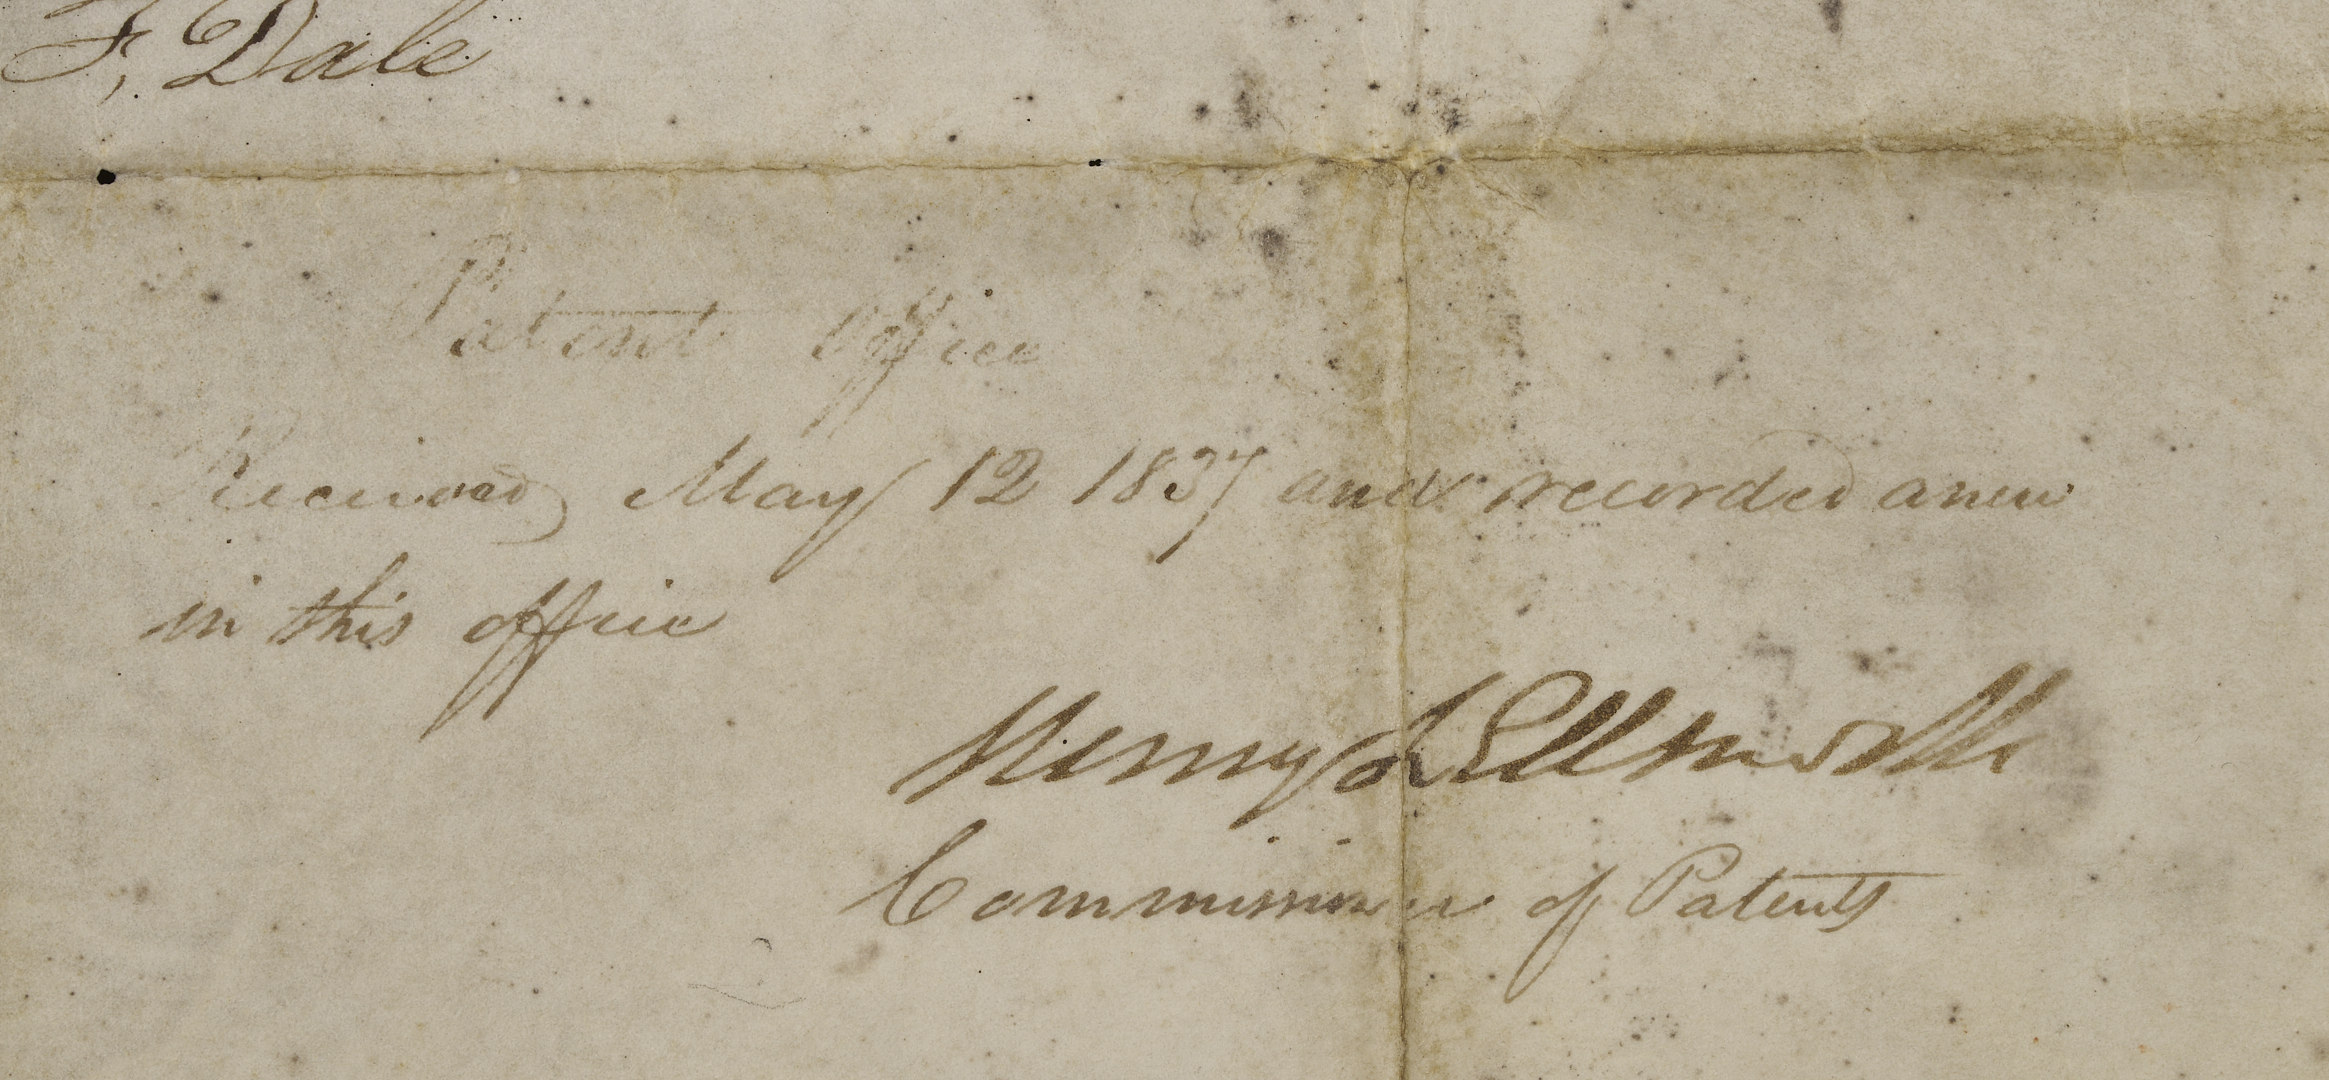 F, Dale
Patent Office
Received May 12 1837 and recorded anew
in this office
Henry L Ellsworth
Commissioner of Patents